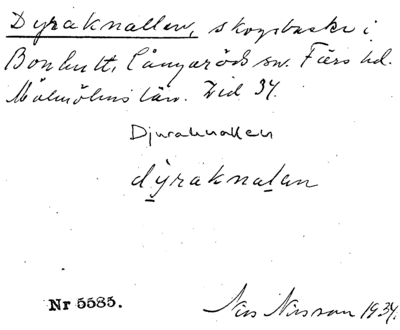 Dyraknallen, skogsbacke i
Bonhutt, Långaröds sn. Färs hd.
Malmöhus län. Zid 34.
Djuraknallen
dyraknalen
Nr 5585.
Nils Nilsson 1934.